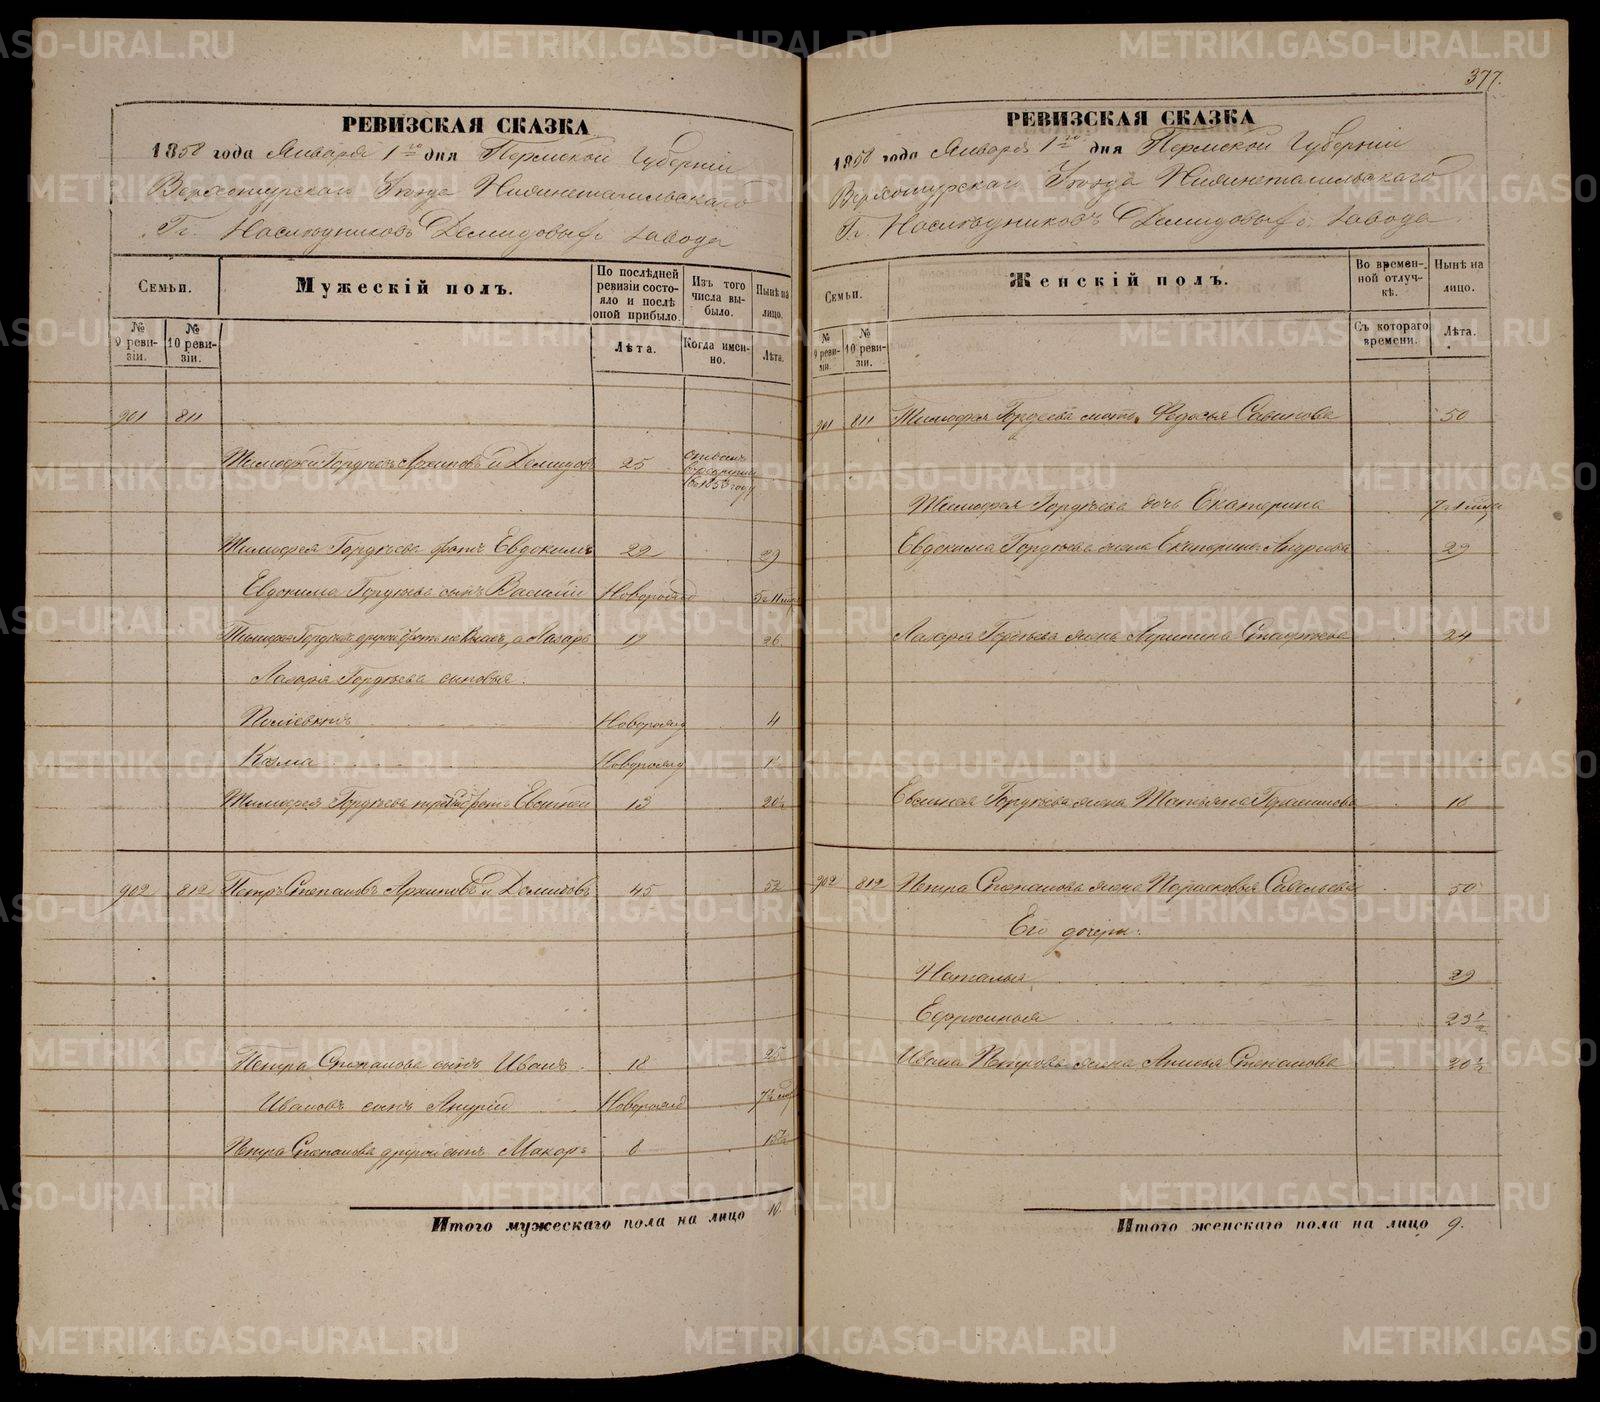 РЕВИЗСКАЯ СКАЗКА
1858 года Января 1го дня Пермской Губернiи
Верхотурскаго Уѣзда Нижнетагильскаго
Гг. Наслѣдниковъ Демидовыхъ завода
Семьи.
№ 9 ревизiи.
№ 10 ревизiи.
Мужескiй полъ.
По послѣдней ревизiи состояло и послѣ оной прибыло.
Лѣта.
Изъ того числа выбыло.
Когда именно.
Нынѣ на лицо.
Лѣта.
901 811
Тимофей Гордѣевъ Архиповъ и Демидовъ 25
Тимофея Гордѣева братъ Евдокимъ 22 29
Евдокима Гордѣева сынъ Василiй Новорожд
Тимофея Гордѣева другой братъ Лазарь 19 26
Лазаря Гордѣева сыновья:
Полiевктъ Новорожд 4
Козма Новорожд
Тимофея Гордѣева братъ Евсигнѣй 13 20½
902 812 Петръ Степановъ Архиповъ и Демидовъ 45 52
Петра Степанова сынъ Иванъ 18 25
Ивановъ сынъ Новорожд
Петра Степанова другой сынъ Макаръ 8 15½
Итого мужескаго пола на лицо 10.
377.
РЕВИЗСКАЯ СКАЗКА
1858 года Января 1го дня Пермской Губернiи
Верхотурскаго Уѣзда Нижнетагильскаго
Гг. Наслѣдниковъ Демидовыхъ завода
Семьи.
№ 9 ревизiи.
№ 10 ревизiи.
Женскiй полъ.
Во временной отлучкѣ.
Съ котораго времени.
Нынѣ на лицо.
Лѣта.
901 811 Тимофея Гордѣева мать Федосья Савинова 50
Тимофея Гордѣева дочь Екатерина
Евдокима Гордѣева жена Екатерина Андреева 29
Лазаря Гордѣева жена 24
Гордѣева жена Татьяна 18
902 812 Петра Степанова жена Парасковья Савельева 50
Его дочери:
Наталья 29
Ефросинья 23½
Ивана Петрова жена Анисья Степанова 20½
Итого женскаго пола на лицо 9.
METRIKI.GASO-URAL.RU